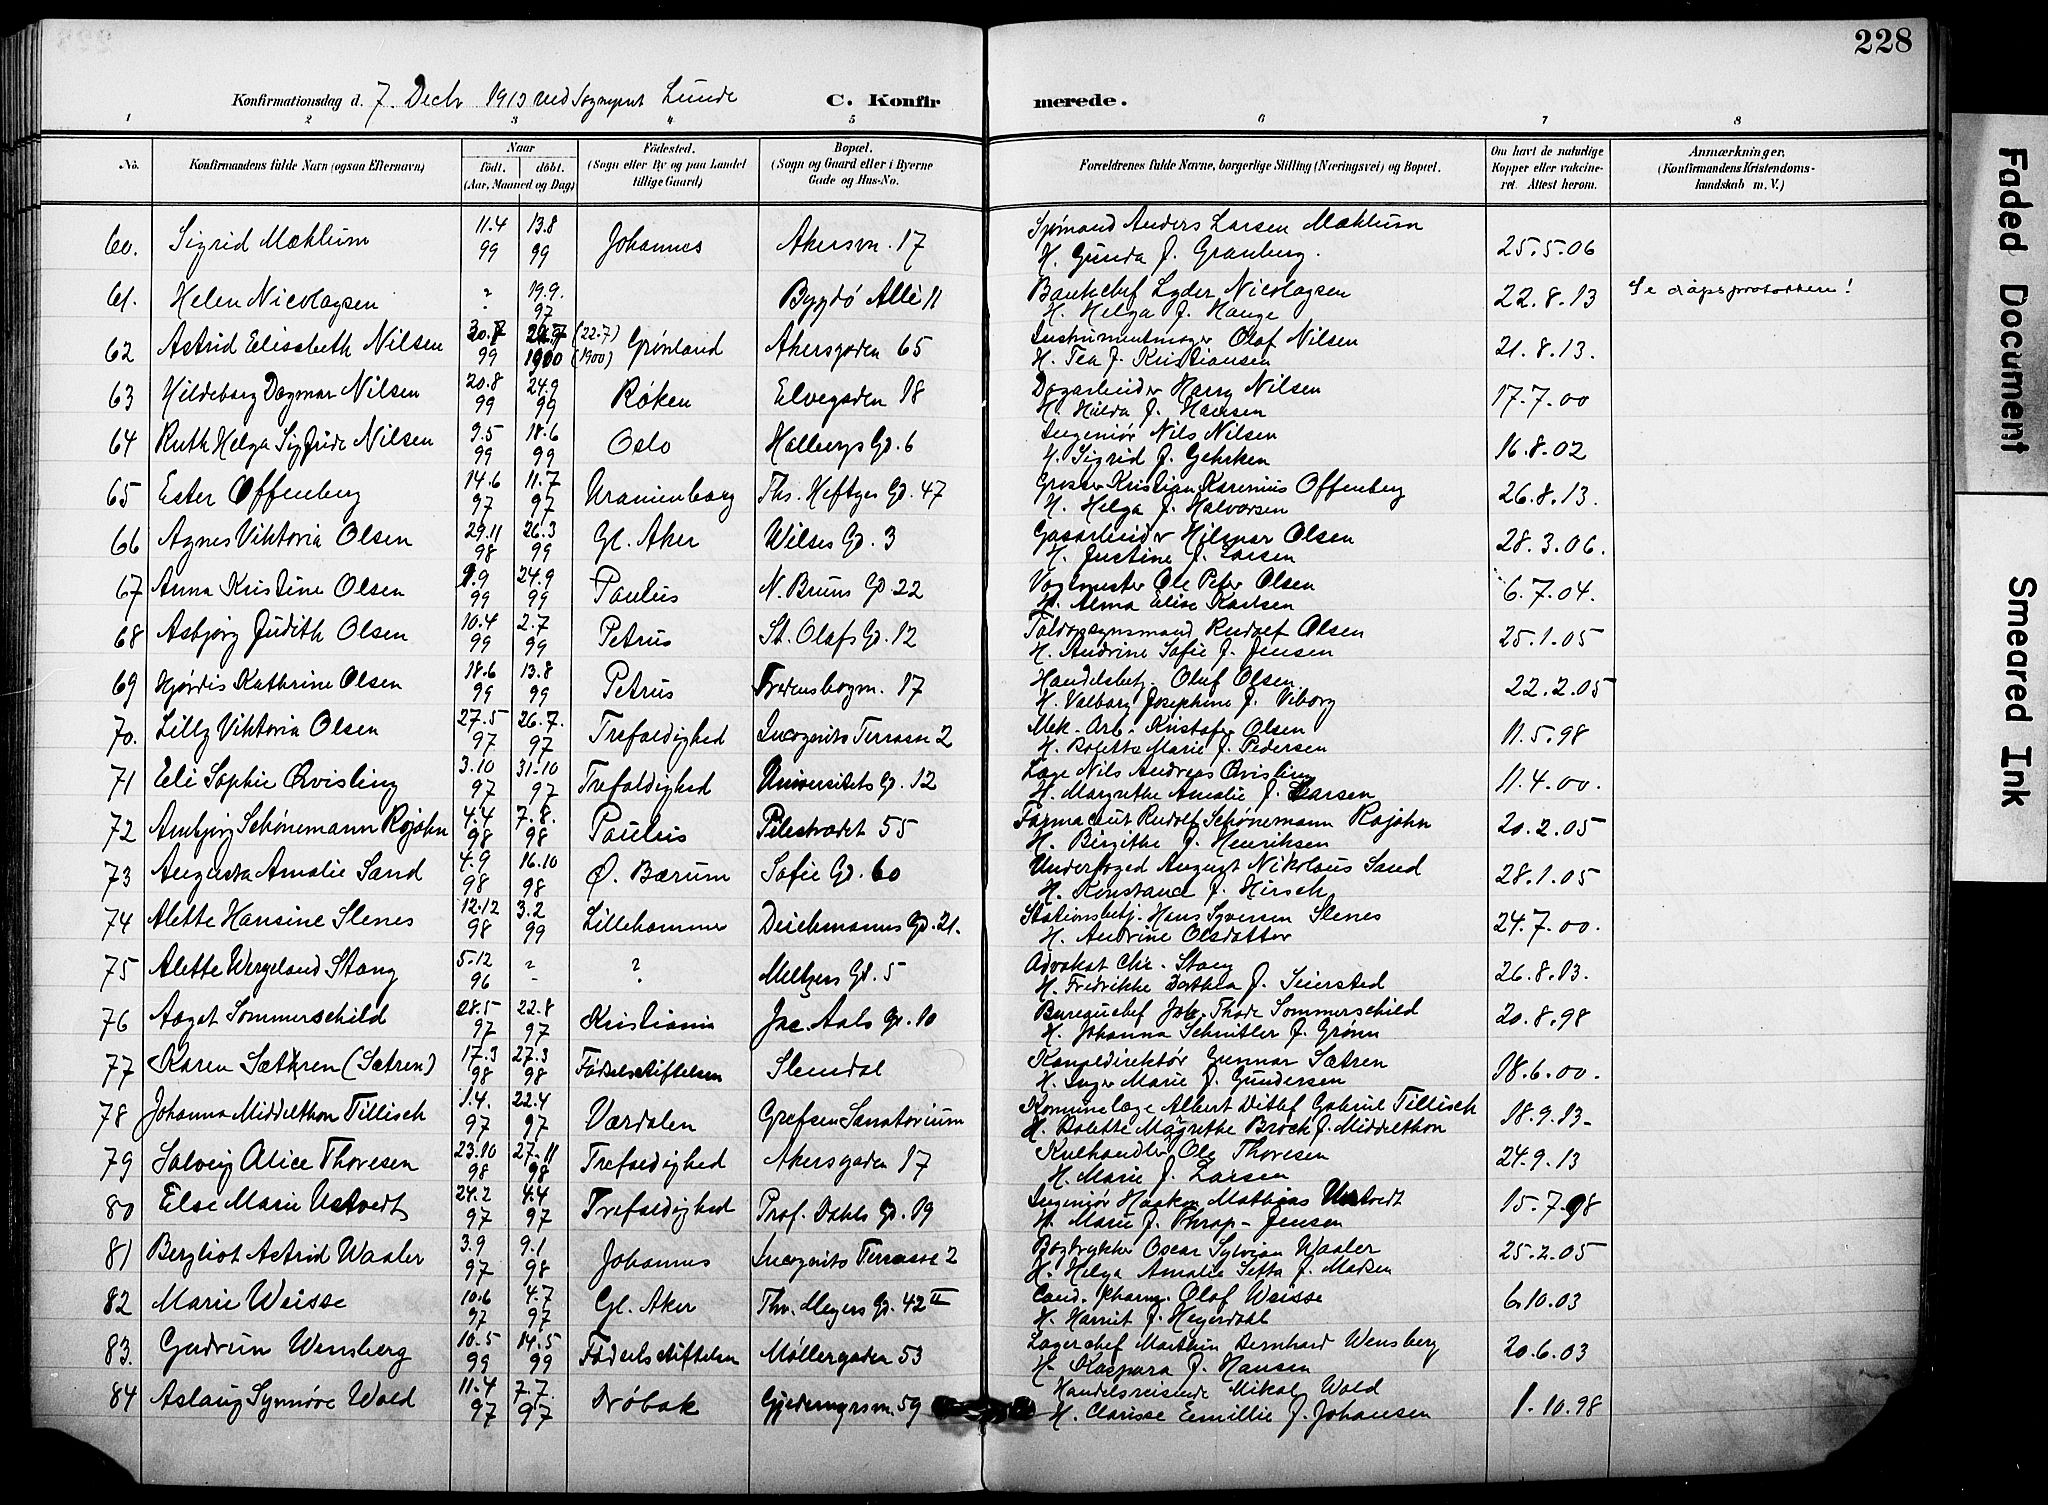 228
Konfirmationsdag d. 7. Decbr 1913 ved Sogneprest Lunde C. Konfirmerede.
1 2 3 4 5 6 7 8
No. Konfirmandens fulde Navn (ogsaa Efternavn) Naar født. døbt. (Aar, Maaned og Dag) Fødested. (Sogn eller By og paa Landet tillige Gaard) Bopæl. (Sogn og Gaard eller i Byerne Gade og Hus-No. Forældrenes fulde Navne, borgerlige Stilling (Næringsvei) og Bopæl. Om havt de naturlige Kopper eller vakcineret. Attest herom. Anmærkninger. (Konfirmandens Kristendomskundskab m. V.)
60. Sigrid Mæhlum 11.4 99 13.8 99 Johannes Akersvn. 17 Sjømand Anders Larsen Mæhlum H. Gunda f. Granberg. 25.5.06
61. Helen Nicolaysen " 19.9. 97 Bygdø Allé 11 Bankchef Lyder Nicolaysen H. Helga f. Hauge 22.8.13 Se dåpsprotokollen!
62 Astrid Elisabeth Nilsen 30.7 99 22.7 1900 (22.7) (1900) Grønland Akersgaden 65 Instrumentmager Olaf Nilsen H. Tea f. Kristiansen 21.8.13.
63 Hildeborg Dagmar Nilsen 20.8 99 24.9 99 Røken Elvegaden 18 Dagarbeider Harry Nilsen H. Hilda f. Hansen 17.7.00
64 Ruth Helga Sigfride Nilsen 9.5 99 18.6 99 Oslo Holbergs Gd. 6 Ingeniør Nils Nilsen H. Sigrid f. Gehrken 16.8.02
65 Ester Offenberg 14.6 97 11.7 97 Uranienborg Ths. Heftyes Gd. 47 Grosser Kristian Karenius Offenberg H. Helga f. Halvorsen 26.8.13.
66 Agnes Viktoria Olsen 29.11 98 26.3 99 Gl. Aker Wilses Gd. 3 Gasarbeider Hilmar Olsen H. Justine f. Larsen 28.3.06.
67 Anna Kristine Olsen 9.9 99 24.9 99 Paulus N. Bruns Gd 22 Vogtmester Ole Peter Olsen H. Alma Elise Karlsen 6.7.04.
68 Asbjørg Judith Olsen 10.4 99 2.7 99 Petrus St. Olafs Gd. 12 Toldopsynsmand Rudolf Olsen H. Andrine Sofie f. Jensen 25.1.05
69 Hjørdis Kathrine Olsen 18.6 99 13.8 99 Petrus Fredensborgvn. 17 Handelsbetj. Oluf Olsen H. Valborg Josephine f. Viborg 22.2.05
70. Lilly Viktoria Olsen 27.5 97 26.7. 97 Trefoldighed Incognito Terrasse 2 Mek. Arb. Kristofer Olsen H. Bolette Marie f. Pedersen 11.5.98
71 Eli Sophie Qvisling 3.10 97 31.10 97 Trefoldighed Universitets Gd. 12 Læge Nils Andreas Qvisling H. Margrethe Amalie f. Larsen 11.4.00.
72 Ambjørg Schønemann Rojahn 4.4 98 7.8. 98 Paulus Pilestrædet 55 Farmaceut Rudolf Schønemann Rojahn H. Birgithe f. Henriksen 20.2.05
73 Augusta Amalie Sand 4.9 98 16.10 98 Ø. Bærum Sofie Gd. 60 Underfoged August Nikolaus Sand H. Konstance f. Hirsch 28.1.05
74 Alette Hansine Slenes 12.12 98 3.2 99 Lillehammer Deichmanns Gd. 21. Stationsbetj. Hans Syversen Slenes H. Andrine Olsdatter 24.7.00.
75 Alette Wergeland Stang 5.12 96 " ? Meltzers Gd. 5 Advokat Chr. Stang H. Fredrikke Dorthea f. Seiersted 26.8.13.
76 Aagot Sommerschild 28.5 97 22.8 97 Kristiania Jac. Aals Gd. 10 Bureauchef Joh. Thode Sommerschild H. Johanna Schnitler f. Grønn 20.8.98
77 Karen Sæthren (Sætren) 17.3 98 27.3 98 Fødselsstiftelsen Slemdal Kanaldirektør Gunnar Sætren H. Inger Marie f. Gundersen 18.6.00.
78 Johanna Middelthon Tillisch 1.4. 97 22.4 97 Værdalen Grefsen Sanatorium Komunelæge Albert Ditlef Gabriel Tillisch H. Bolette Magrethe Broch f. Middelthon 18.9.13
79 Solveig Alice Thoresen 23.10 98 27.11 98 Trefoldighed Akersgaden 17 Kulhandler Ole Thoresen H. Marie f. Larsen 24.9.13
80 Else Marie Ustvedt 24.2 97 4.4 97 Trefoldighed Prof. Dahls Gd. 19 Ingeniør Haakon Mathias Ustvedt H. Marie f. Thrap-Jensen 15.7.98
81 Bergliot Astrid Waaler 3.9 97 9.1 98 Johannes Incognito Terrasse 2 Bogtrykker Oscar Sylvian Waaler H. Helga Amalie Setta f. Madsen 25.2.05
82 Marie Weisse 10.6 97 4.7 97 Gl. Aker Thv. Meyers Gd. 42 II Cand. pharm. Olaf Weisse H. Harriit f. Heyerdahl 6.10.03
83. Gudrun Wensberg 10.5 99 14.5 99 Fødselsstiftelsen Møllergaden 53 Lagerchef Marthin Bernhard Wensberg H. Kaspara f. Hansen 20.6.03
84 Aslaug Synnøve Wold 11.4 97 7.7. 97 Drøbak Gjedemyrsvn. 59 Handelsreisende Mikal Wold H. Clarisse Emillie f. Johansen 1.10.98
Faded Document
Smeared Ink